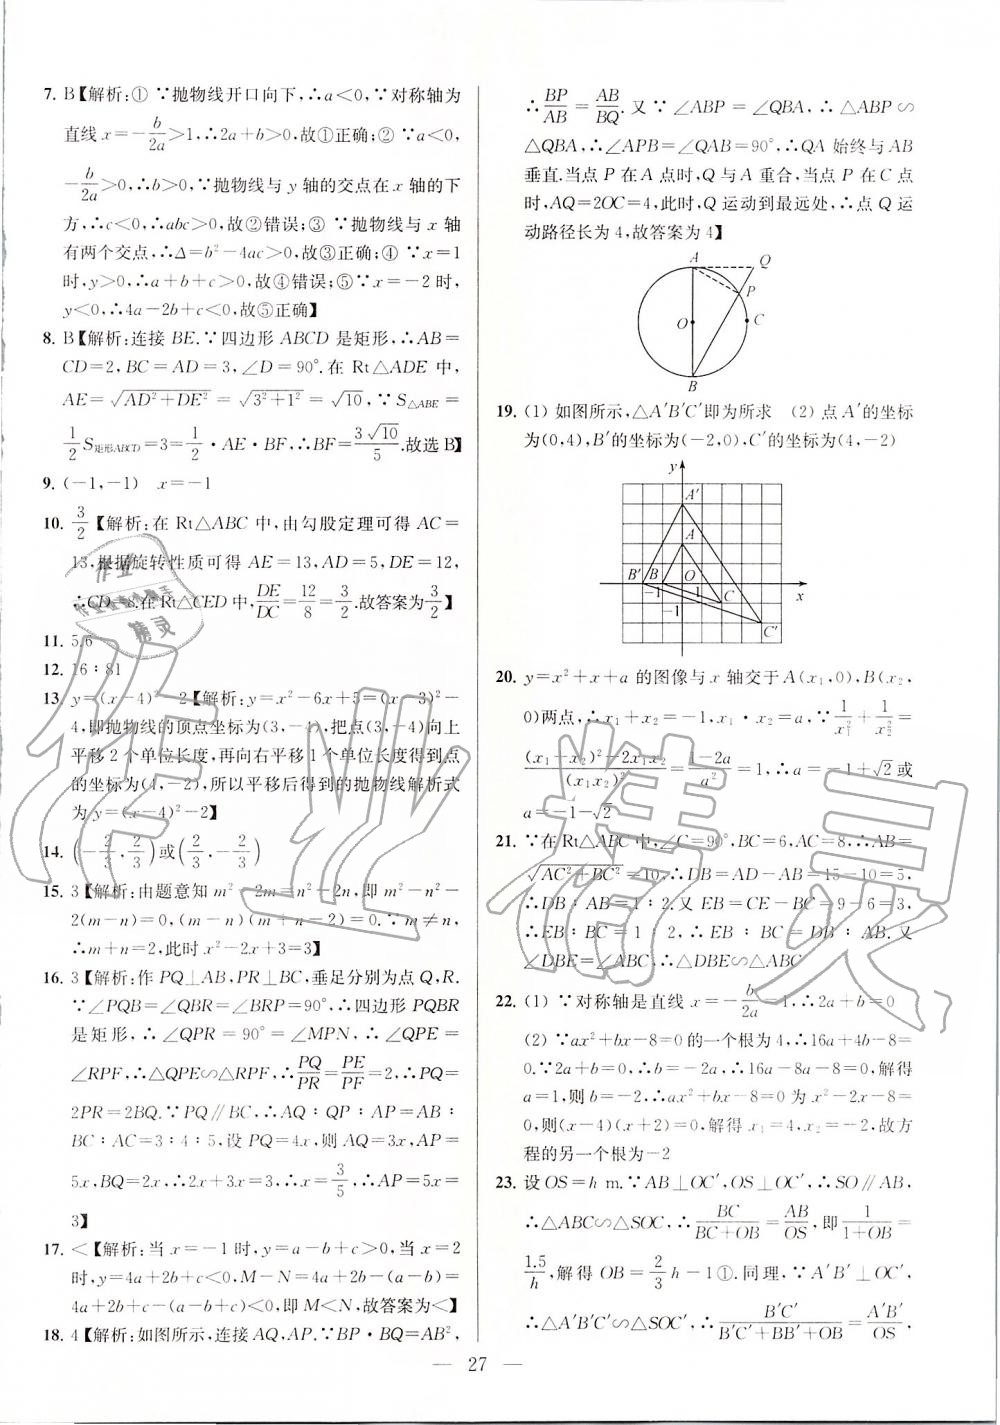 7. B【解析:① ∵抛物线开口向下,∴a<0,∵对称轴为
直线 x=-b/2a>1,∴2a+b>0,故①正确;② ∵a<0,
-b/2a>0,∴b>0,∵抛物线与 y 轴的交点在 x 轴的下
方,∴c<0,∴abc>0,故②错误;③ ∵抛物线与 x 轴
有两个交点,∴Δ=b²-4ac>0,故③正确;④ ∵x=1
时,y>0,∴a+b+c>0,故④错误;⑤∵x=-2 时,
y<0,∴4a-2b+c<0,故⑤正确】
8. B【解析:连接 BE.∵四边形 ABCD 是矩形,∴AB=
CD=2,BC=AD=3,∠D=90°.在 Rt△ADE 中,
AE=√(AD²+DE²)=√(3²+1²)=√10,∵S△ABE=
1/2 S矩形ABCD=3=1/2·AE·BF,∴BF=3√10/5.故选 B】
9. (-1,-1) x=-1
10. 3/2【解析:在 Rt△ABC 中,由勾股定理可得 AC=
13,根据旋转性质可得 AE=13,AD=5,DE=12,
∴CD=8.在 Rt△CED 中,DE/DC=12/8=3/2.故答案为3/2】
11. 5.6
12. 16∶81
13. y=(x-4)²-2【解析:y=x²-6x+5=(x-3)²-
4,即抛物线的顶点坐标为(3,-4),把点(3,-4)向上
平移 2 个单位长度,再向右平移 1 个单位长度得到点
的坐标为(4,-2),所以平移后得到的抛物线解析式
为 y=(x-4)²-2】
14. (-2/3,2/3)或(2/3,-2/3)
15. 3【解析:由题意知 m²-2m=n²-2n,即 m²-n²-
2(m-n)=0,(m-n)(m+n-2)=0.∵m≠n,
∴m+n=2,此时 x²-2x+3=3】
16. 3【解析:作 PQ⊥AB,PR⊥BC,垂足分别为点 Q,R.
∵∠PQB=∠QBR=∠BRP=90°,∴四边形 PQBR
是矩形,∴∠QPR=90°=∠MPN,∴∠QPE=
∠RPF,∴△QPE∽△RPF,∴PQ/PR=PE/PF=2,∴PQ=
2PR=2BQ.∵PQ∥BC,∴AQ∶QP∶AP=AB∶
BC∶AC=3∶4∶5,设 PQ=4x,则 AQ=3x,AP=
5x,BQ=2x,∴2x+3x=3,∴x=3/5,∴AP=5x=
3】
17. <【解析:当 x=-1 时,y=a-b+c>0,当 x=2
时,y=4a+2b+c<0,M-N=4a+2b-(a-b)=
4a+2b+c-(a-b+c)<0,即 M<N,故答案为<】
18. 4【解析:如图所示,连接 AQ,AP.∵BP·BQ=AB²,
∴BP/AB=AB/BQ.又∵∠ABP=∠QBA,∴△ABP∽
△QBA,∴∠APB=∠QAB=90°,∴QA 始终与 AB
垂直.当点 P 在 A 点时,Q 与 A 重合,当点 P 在 C 点
时,AQ=2OC=4,此时,Q 运动到最远处,∴点 Q 运
动路径长为 4,故答案为 4】
A Q
P
O C
B
19. (1) 如图所示,△A′B′C′即为所求 (2) 点 A′的坐标
为(0,4),B′的坐标为(-2,0),C′的坐标为(4,-2)
y
A′
A
B′ B O
-1 1 x
-1 C
C′
20. y=x²+x+a 的图像与 x 轴交于 A(x₁,0),B(x₂,
0)两点,∴x₁+x₂=-1,x₁·x₂=a,∵1/x₁²+1/x₂²=
((x₁+x₂)²-2x₁x₂)/(x₁x₂)²=(1-2a)/a²=1,∴a=-1+√2或
a=-1-√2
21. ∵在 Rt△ABC 中,∠C=90°,BC=6,AC=8,∴AB=
√(AC²+BC²)=10,∴DB=AD-AB=15-10=5,
∴DB∶AB=1∶2.又 EB=CE-BC=9-6=3,
∴EB∶BC=1∶2,∴EB∶BC=DB∶AB.又
∠DBE=∠ABC,∴△DBE∽△ABC
22. (1) ∵对称轴是直线 x=-b/2a=1,∴2a+b=0
(2) ∵ax²+bx-8=0 的一个根为 4,∴16a+4b-8=
0.∵2a+b=0,∴b=-2a,∴16a-8a-8=0,解得
a=1,则 b=-2,∴ax²+bx-8=0 为 x²-2x-8=
0,则(x-4)(x+2)=0,解得 x₁=4,x₂=-2,故方
程的另一个根为-2
23. 设 OS=h m.∵AB⊥OC′,OS⊥OC′,∴SO∥AB,
∴△ABC∽△SOC,∴BC/(BC+OB)=AB/OS,即1/(1+OB)=
1.5/h,解得 OB=2/3h-1①.同理,∵A′B′⊥OC′,
∴△A′B′C′∽△SOC′,∴B′C′/(B′C′+BB′+OB)=A′B′/OS,
— 27 —
作业精灵